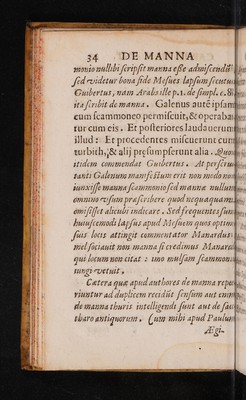 34 DE MANNA
monio nullibi scripsit manna esse admiscendū
sed videtur bona fide Mesues lapsum secutus
Guibertus, nam Arabs ille p. 1. de simpl. c. 8.
ita scribit de manna. Galenus autē ipsam
cum scammoneo permiscuit, & operaba
tur cum eis. Et posteriores laudauerunt
illud: Et procedentes miscuerunt cum
turbith, & alij præsumpserunt alia. Quod
itidem commendat Guibertus. At perscru
tanti Galenum manifestum erit non modo non
iunxisse manna scammonio sed mannæ nullum
omnino vsum præscribere quod nequaquam
omisisset alicubi indicare. Sed frequentes sunt
huiuscemodi lapsus apud Mesuem quos optime
suis locis attingit commentator Manardus
mel sociauit non manna si credimus Manardo
qui locum non citat: imo mulsam scammonio
iungi vetuit.
Cætera quæ apud authores de manna repe
riuntur ad duplicem recidūt sensum aut enim
de manna thuris intelligendi sunt aut de sac
charo antiquorum. Cum mihi apud Paulum
Ægi-